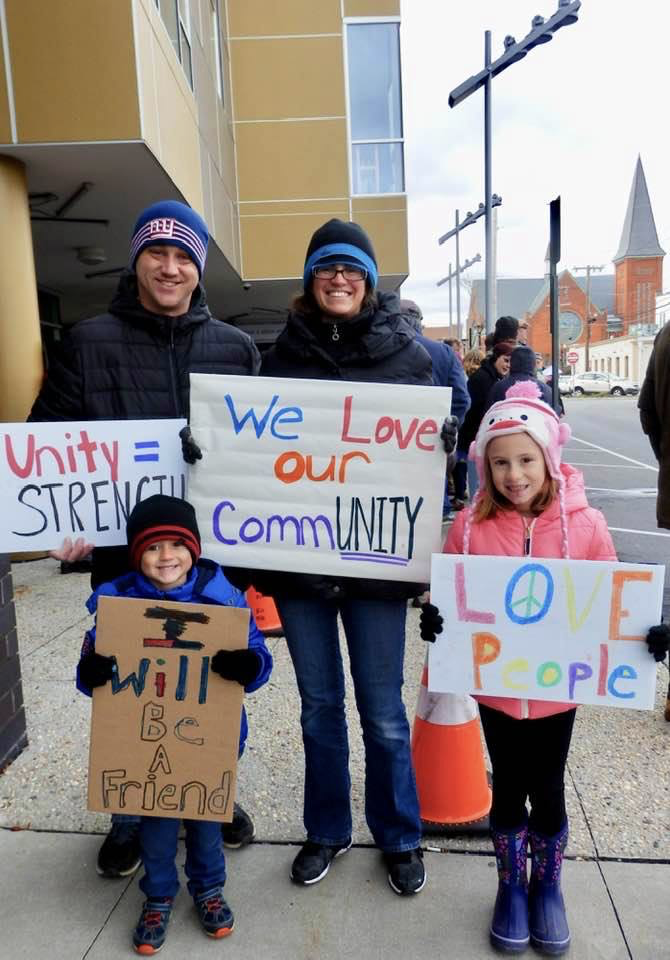 NY
Unity =
STRENGTH
We Love
our
CommUNITY
I
Will
Be
A
Friend
LOVE
People